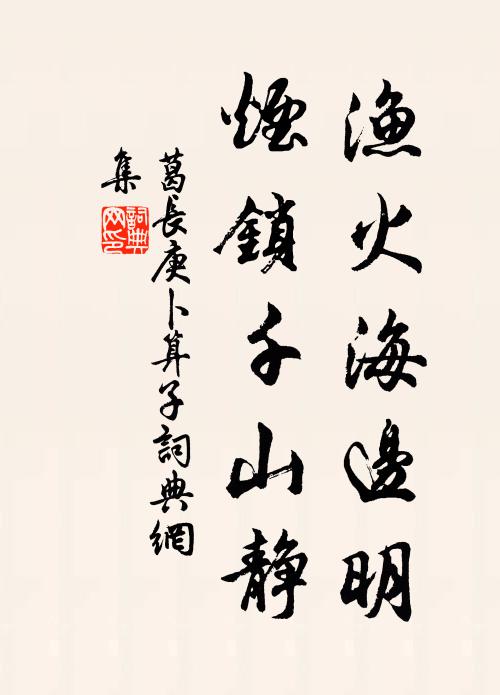 漁火海邊明
煙鎖千山靜
葛長庚卜算子詞典網
集
詞典
网印